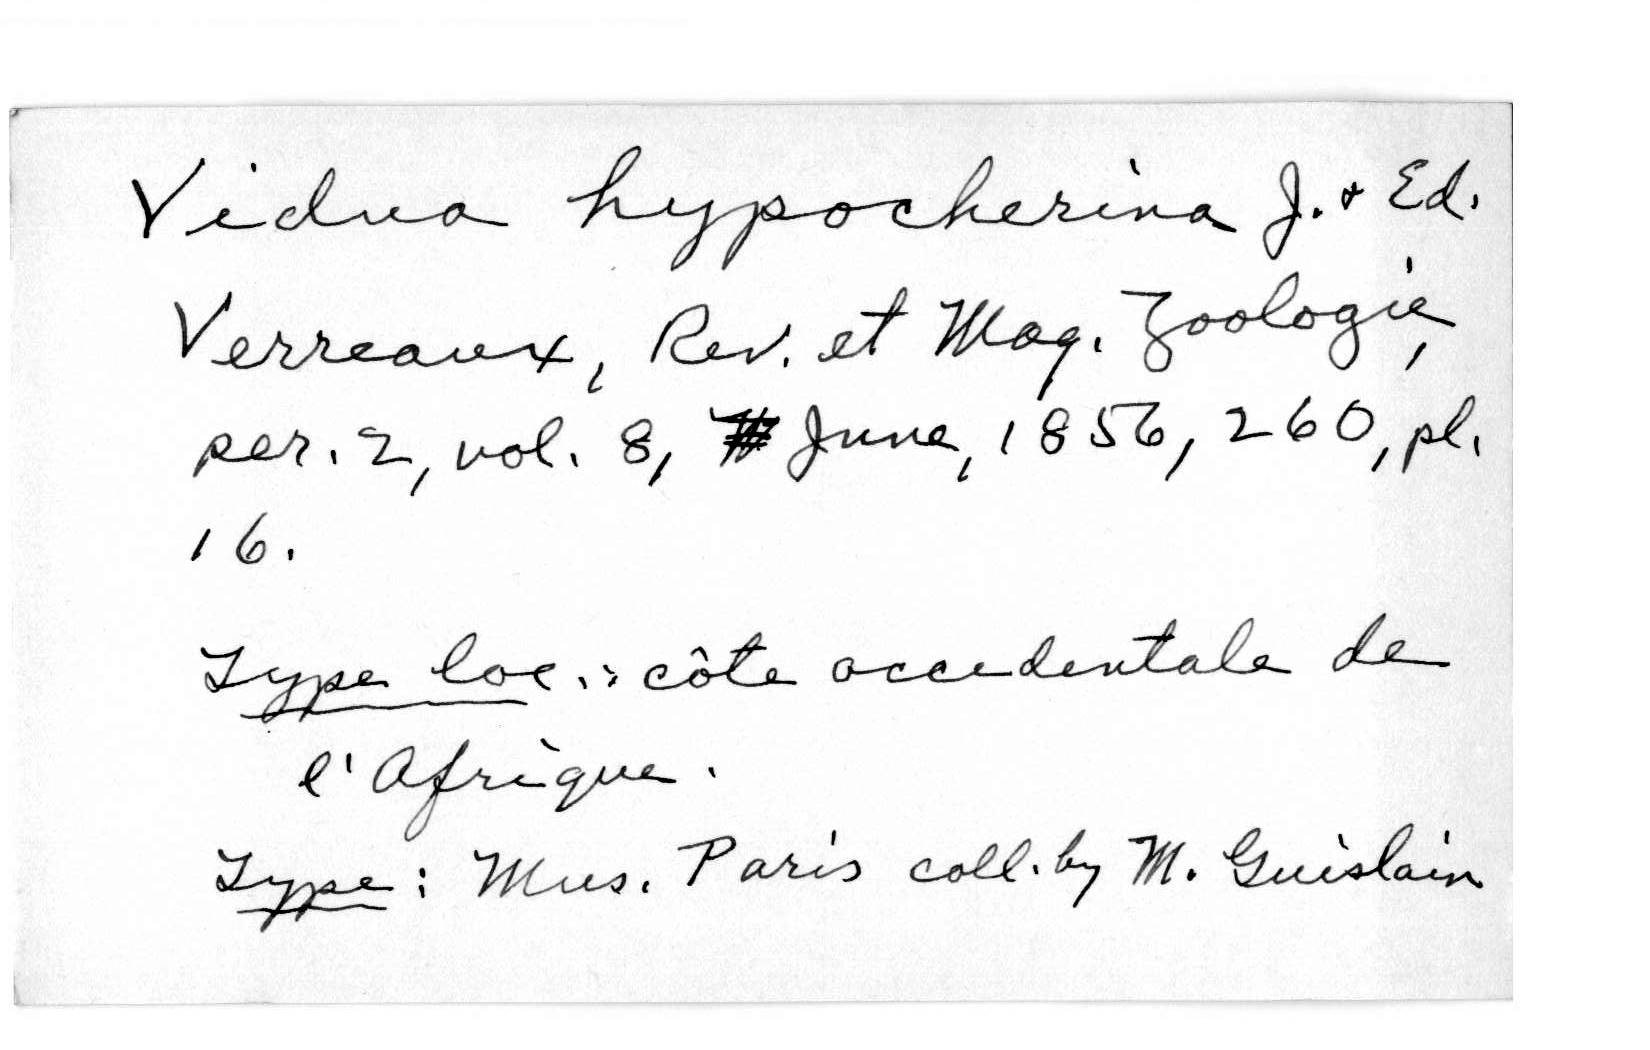 Vidua hypocherina J. & Ed.
Verreaux, Rev. et Mag. Zoologie,
per. 2, vol. 8, June, 1856, 260, pl.
16.
Type loc.: côte occidentale de
l'Afrique.
Type: Mus. Paris coll. by M. Guislain